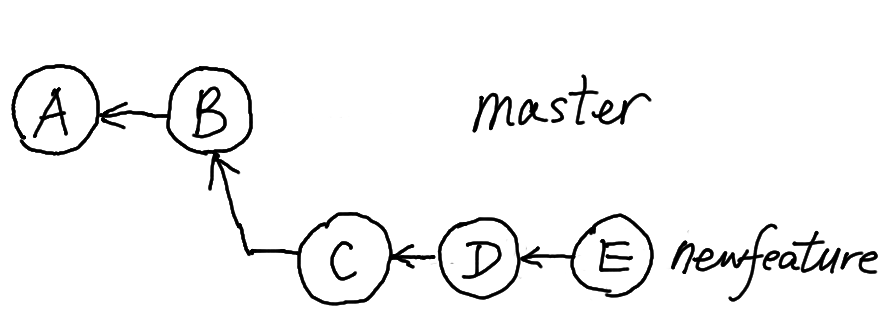 A B master
C D E newfeature